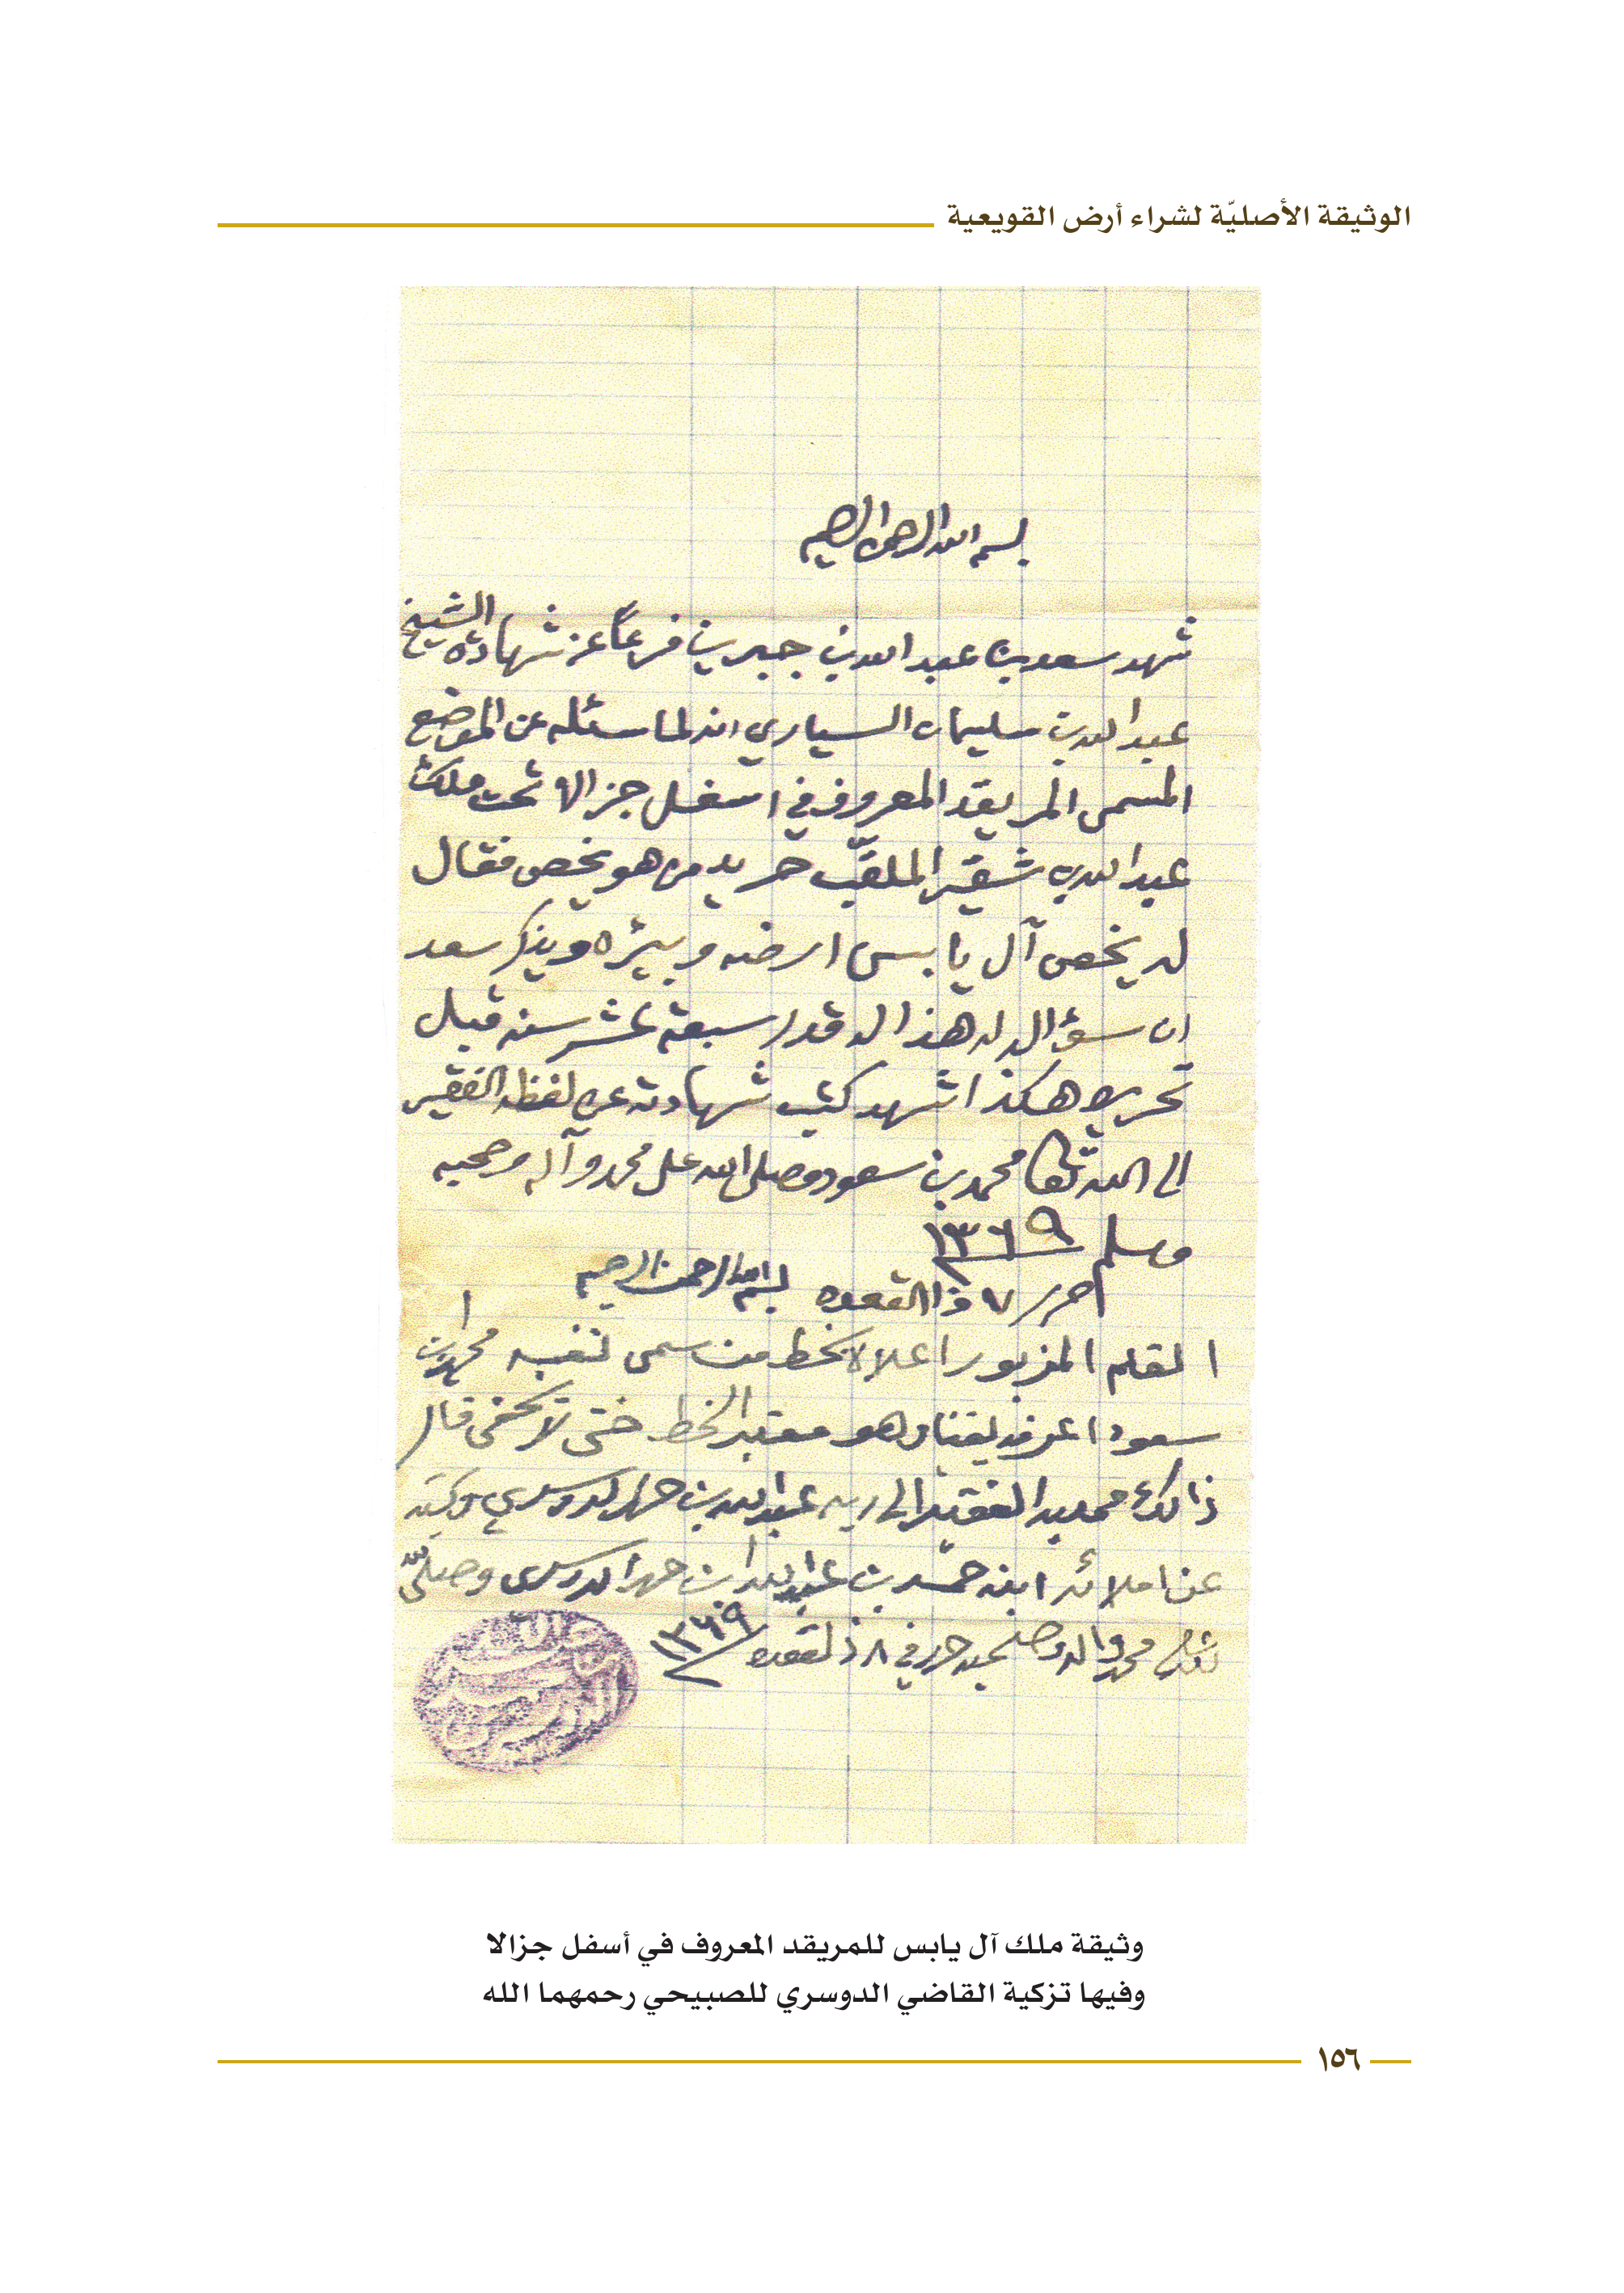 الوثيقة الأصليّة لشراء أرض القويعية
بسم الله الرحمن الرحيم
شهد سعد بن عبد الله بن جبرين فرعاً عن شهادة الشيخ
عبد الله بن سليمان السياري انه لما سئله عن الموضع
المسمى المريقد المعروف في اسفل جزالا تحت ملك
عبد الله بن شقير الملقّب حريد من هو يخص فقال
له يخص آل يابس ارضه وبيئره ويذكر سعد
ان سؤاله له هذا له قدر سبعة عشر سنه قبل
تحريره هكذا شهد كتب شهادته عن لفظه الفقير
الى الله تعالى محمد بن سعود وصلى الله على محمد وآله وصحبه
وسلم ١٣٦٩
حرر ٧ ذا القعده بسم الله الرحمن الرحيم
القلم المزبور اعلاه بخط من سمى نفسه محمد ابن
سعود اعرفه يقينا وهو معتبر الخط حتى لا يخفى قال
ذالك ممليه الفقير الى ربه عبد الله بن حمد الدوسري وكتبه
عن املائه ابنه حمد بن عبد الله ابن حمد الدوسري وصلى الله
على محمد واله وصحبه حرر في ٨ ذ لقعده ١٣٦٩
وثيقة ملك آل يابس للمريقد المعروف في أسفل جزالا
وفيها تزكية القاضي الدوسري للصبيحي رحمهما الله
١٥٦